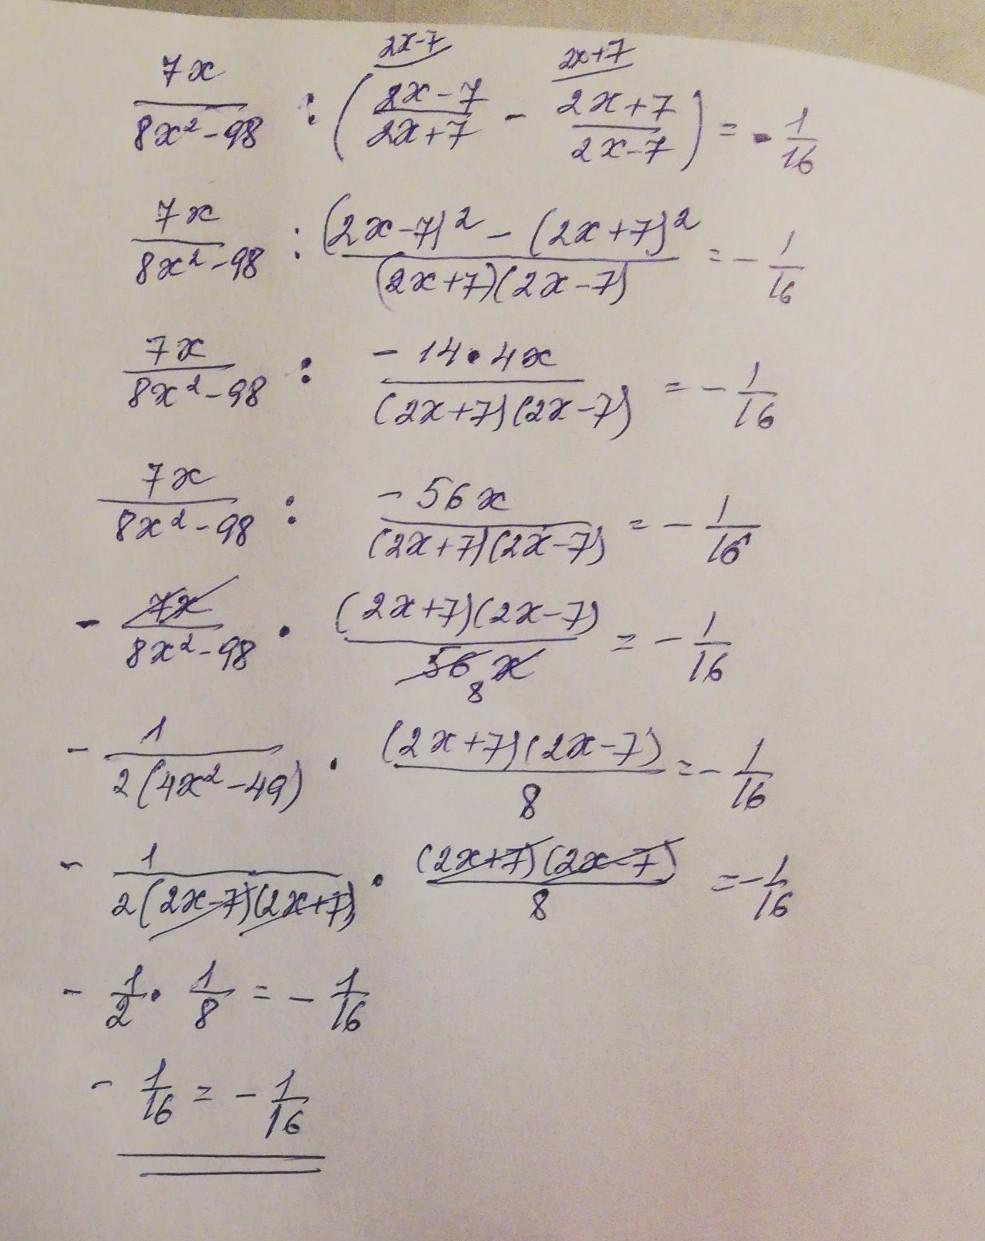 7x/(8x²-98) : ((2x-7)/(2x+7) ^(2x-7) - (2x+7)/(2x-7) ^(2x+7)) = -1/16
7x/(8x²-98) : ((2x-7)² - (2x+7)²)/((2x+7)(2x-7)) = -1/16
7x/(8x²-98) : (-14·4x)/((2x+7)(2x-7)) = -1/16
7x/(8x²-98) : (-56x)/((2x+7)(2x-7)) = -1/16
- 7x/(8x²-98) · ((2x+7)(2x-7))/(56x) 8 = -1/16
- 1/(2(4x²-49)) · ((2x+7)(2x-7))/8 = -1/16
- 1/(2(2x-7)(2x+7)) · ((2x+7)(2x-7))/8 = -1/16
- 1/2 · 1/8 = -1/16
- 1/16 = -1/16